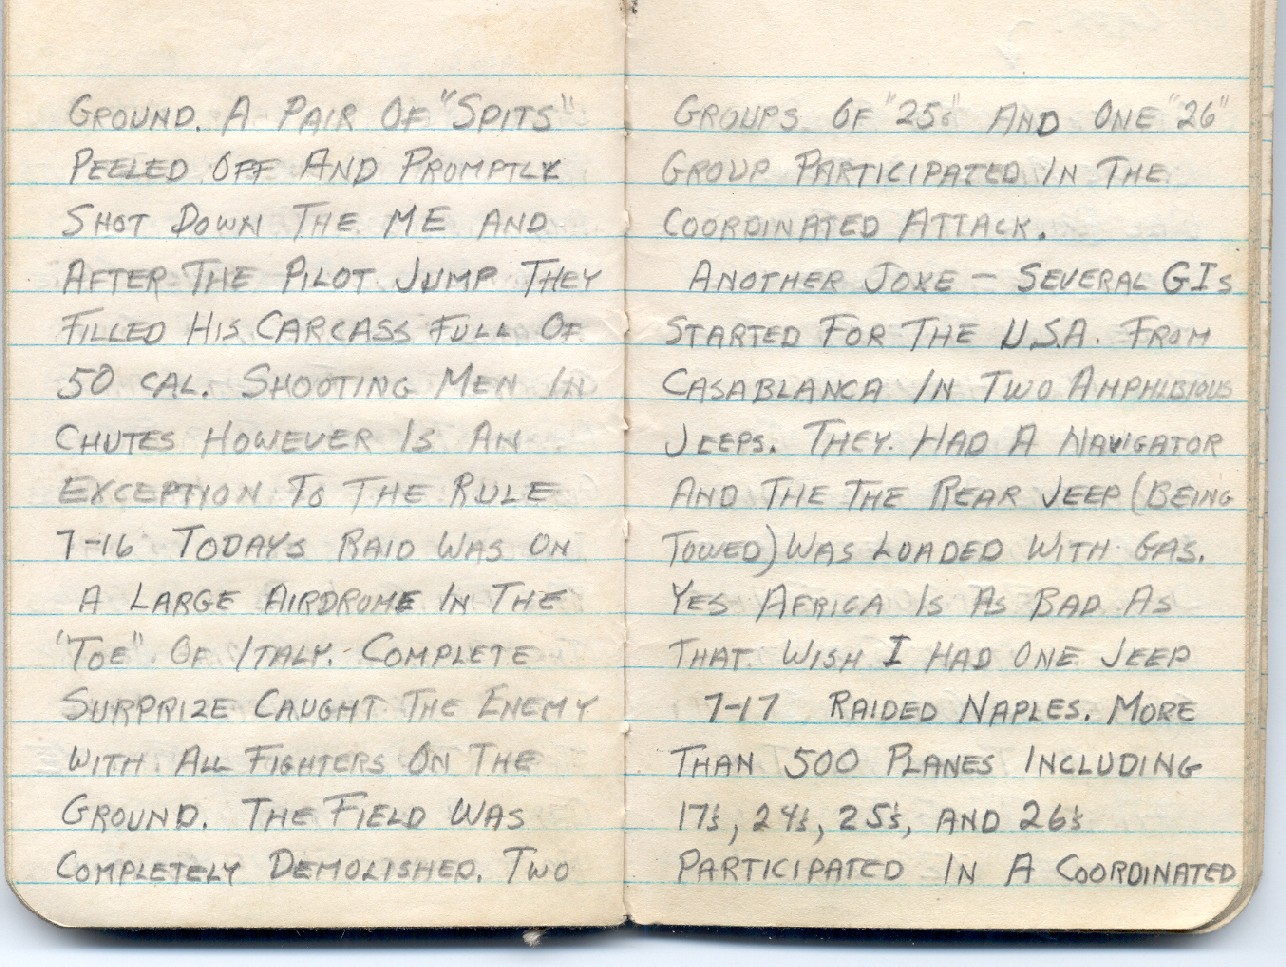 GROUND. A PAIR OF "SPITS"
PEELED OFF AND PROMPTLY
SHOT DOWN THE ME AND
AFTER THE PILOT JUMP THEY
FILLED HIS CARCASS FULL OF
50 CAL. SHOOTING MEN IN
CHUTES HOWEVER IS AN
EXCEPTION TO THE RULE
7-16 TODAYS RAID WAS ON
A LARGE AIRDROME IN THE
"TOE" OF ITALY. COMPLETE
SURPRIZE CAUGHT THE ENEMY
WITH ALL FIGHTERS ON THE
GROUND. THE FIELD WAS
COMPLETELY DEMOLISHED. TWO
GROUPS OF "25s" AND ONE "26"
GROUP PARTICIPATED IN THE
COORDINATED ATTACK.
ANOTHER JOKE — SEVERAL GIs
STARTED FOR THE U.S.A. FROM
CASABLANCA IN TWO AMPHIBIOUS
JEEPS. THEY HAD A NAVIGATOR
AND THE THE REAR JEEP (BEING
TOWED) WAS LOADED WITH GAS.
YES AFRICA IS AS BAD AS
THAT WISH I HAD ONE JEEP
7-17 RAIDED NAPLES. MORE
THAN 500 PLANES INCLUDING
17's, 24's, 25's, AND 26's
PARTICIPATED IN A COORDINATED